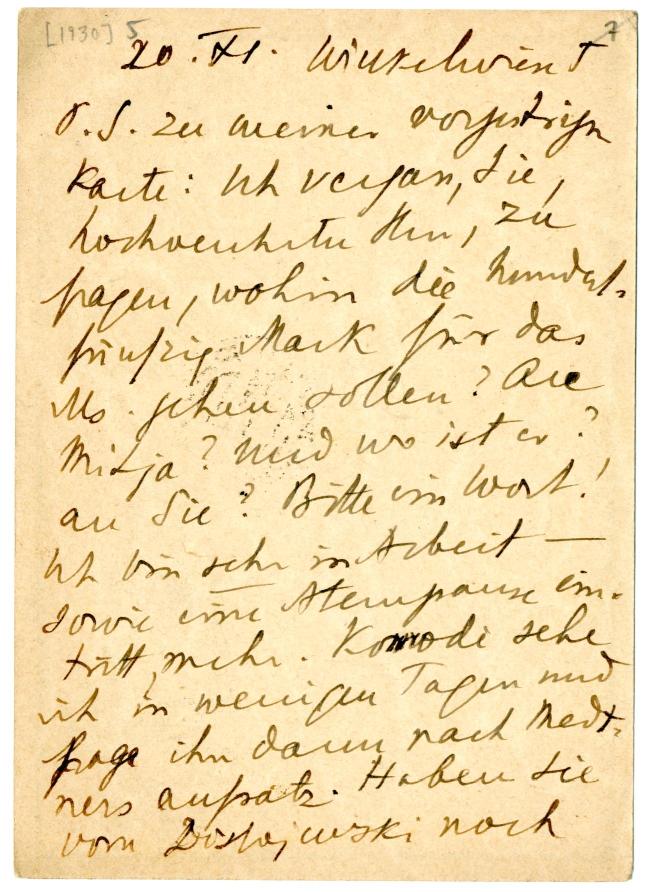 [1930] 5 7
20. XI. Winkelwiese 5
P.S. zu meiner vorgestrigen
Karte: Ich vergaß, Sie,
hochverehrter Herr, zu
fragen, wohin die hundert-
fünfzig Mark für das
Ms. gehen sollen? An
Mitja? Und wo ist er?
an Sie? Bitte ein Wort!
Ich bin sehr in Arbeit —
sowie eine Atempause ein-
tritt, mehr. Komodi sehe
ich in wenigen Tagen und
frage ihn dann nach Medt-
ners Aufsatz. Haben Sie
vom Dostojewski noch